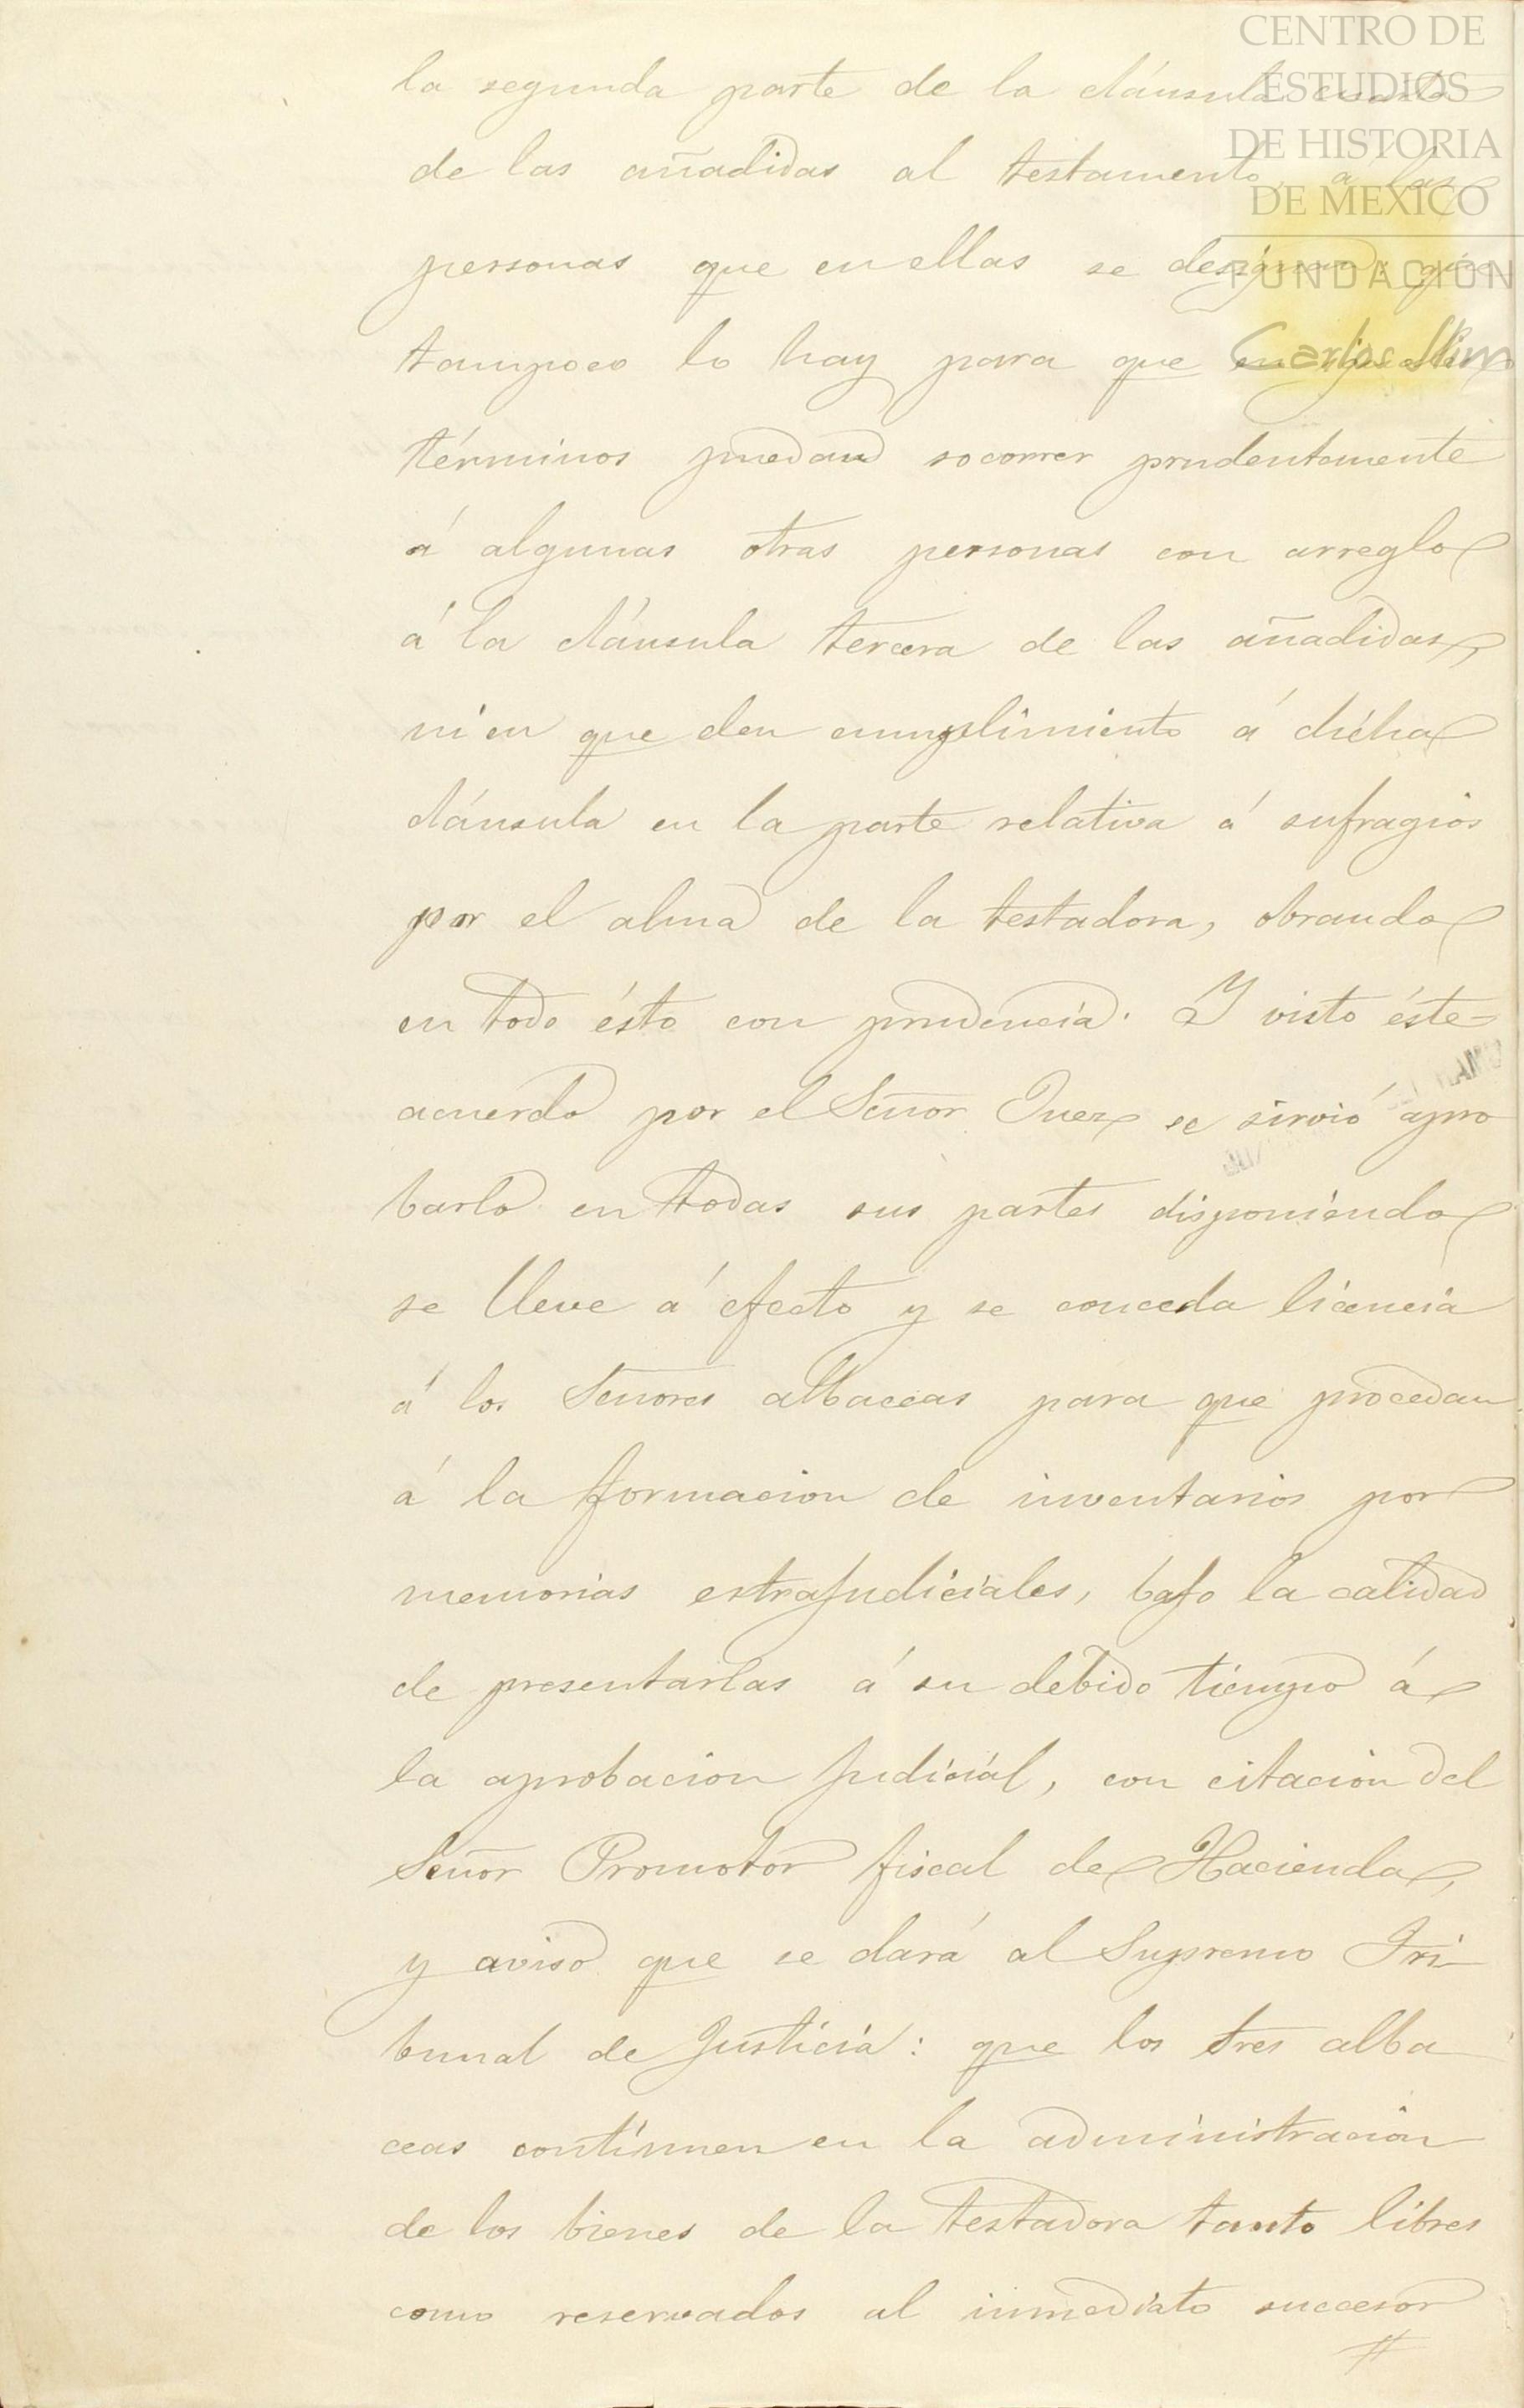 CENTRO DE
ESTUDIOS
DE HISTORIA
DE MEXICO
FUNDACION
Carlos Slim
la segunda parte de la cláusula cuarta
de las añadidas al testamento, a las
personas que en ellas se designan; que
tampoco lo hay para que en iguales
términos puedan socorrer prudentemente
á algunas otras personas con arreglo
á la cláusula tercera de las añadidas,
ni en que den cumplimiento á dicha
cláusula en la parte relativa á sufragios
por el alma de la testadora, obrando
en todo ésto con prudencia. Y visto éste
acuerdo por el Señor Juez se sirvió apro
barlo en todas sus partes disponiendo
se lleve á efecto y se conceda licencia
á los Señores albaceas para que procedan
á la formacion de inventarios por
memorias estrajudiciales, bajo la calidad
de presentarlas á su debido tiempo á
la aprobacion judicial, con citacion del
Señor Promotor fiscal de Hacienda,
y aviso que se dará al Supremo Tri-
bunal de Justicia: que los tres alba
ceas continuen en la administracion
de los bienes de la testadora tanto libres
como reservados al inmediato succesor